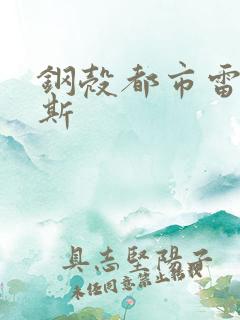 鋼殼都市雷
斯
具志堅陽子
未任同意禁止轉載